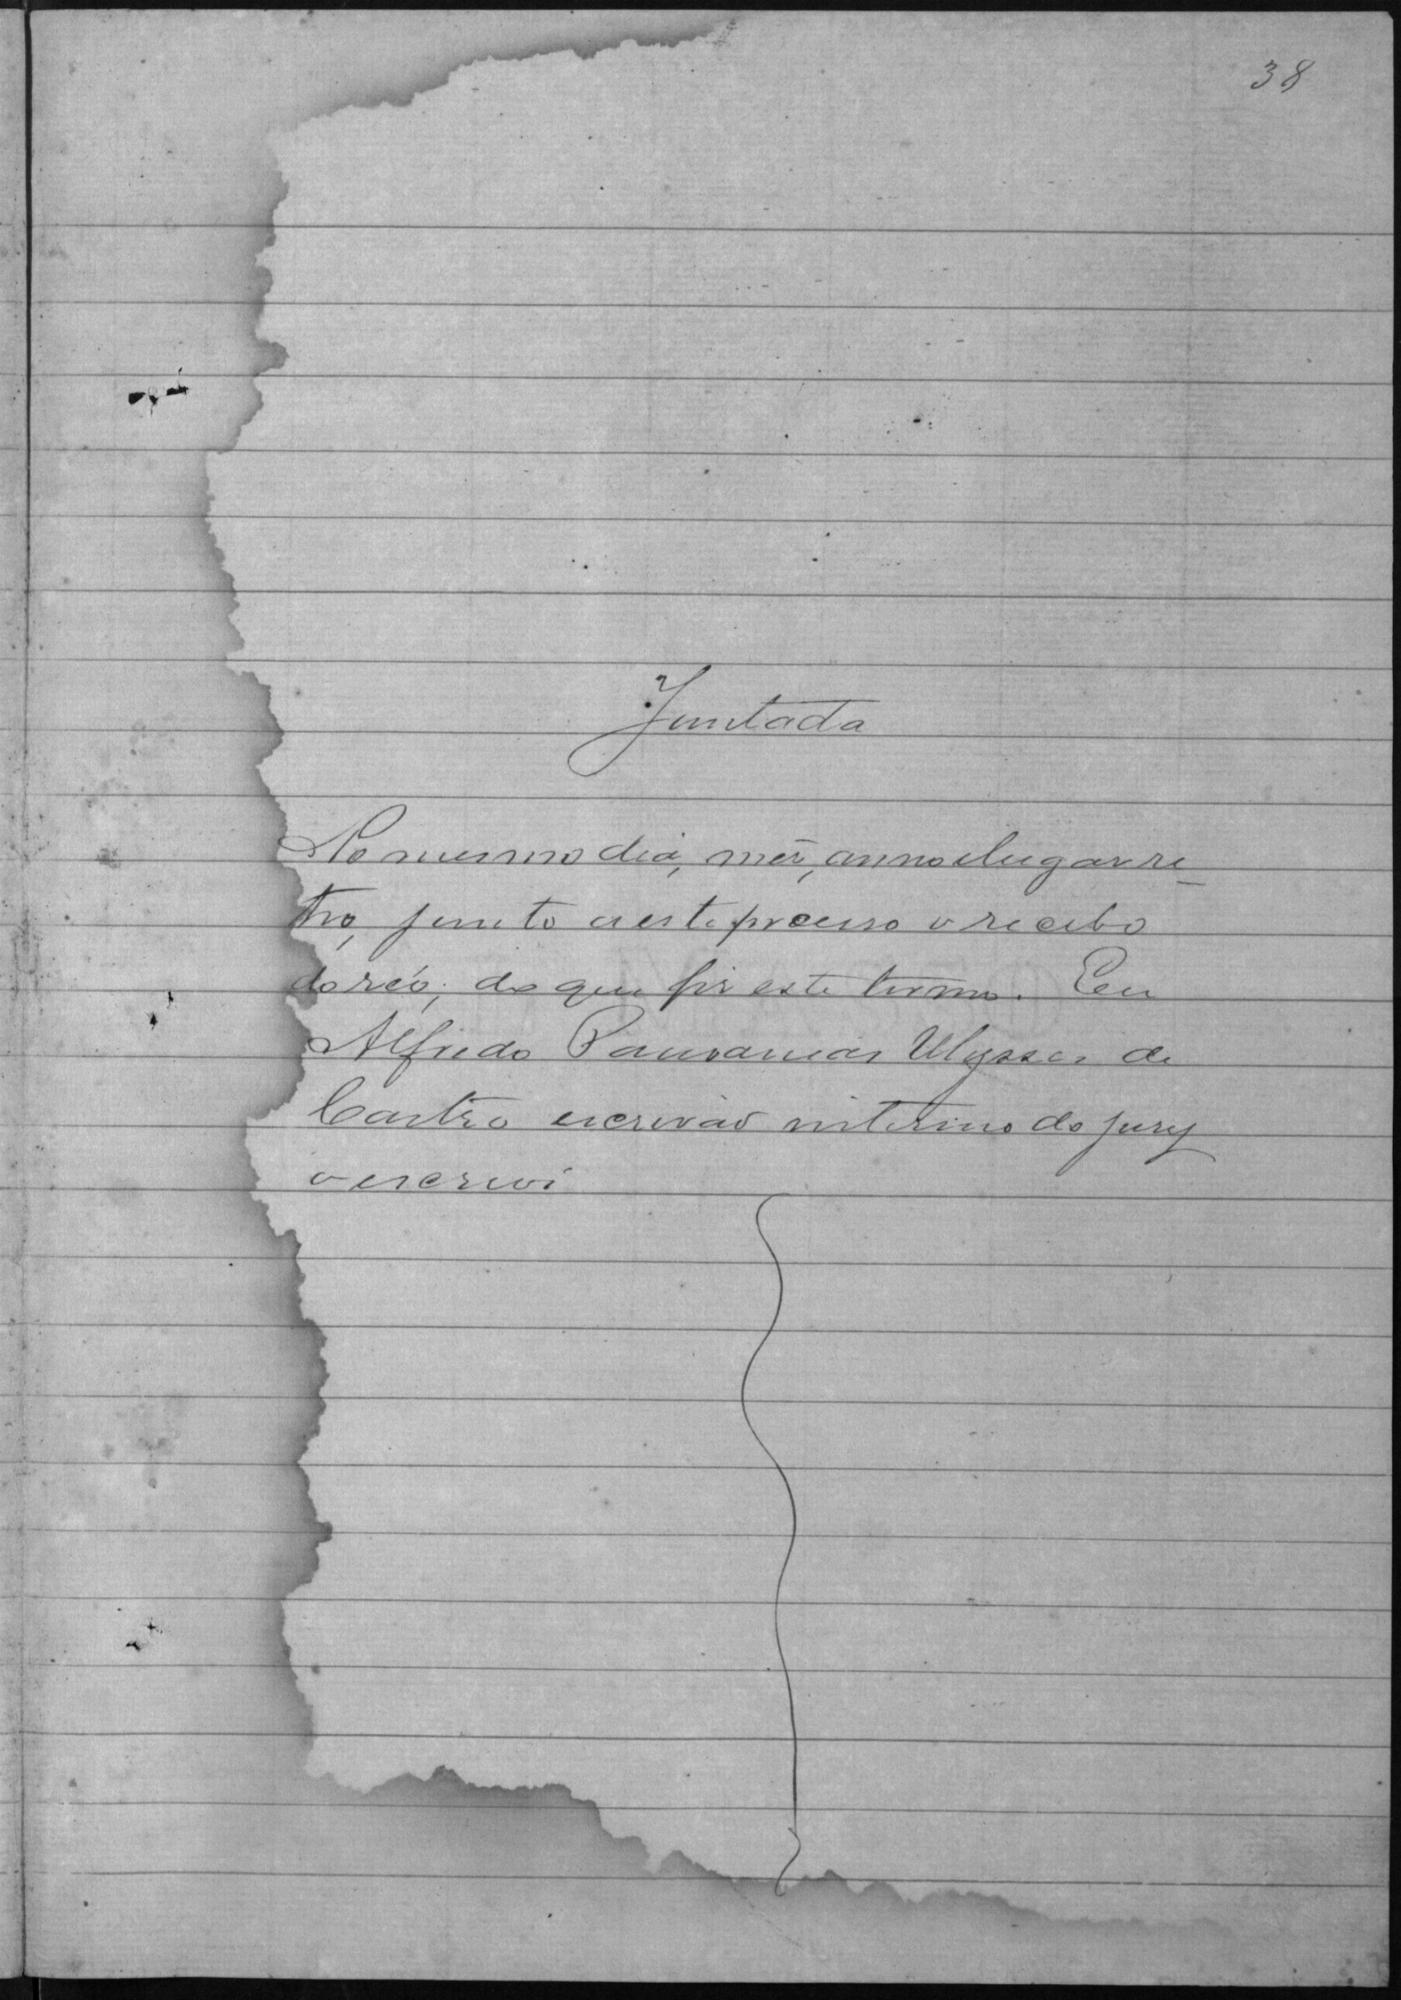 38
Juntada
No mesmo dia, mês, anno e lugar re-
tro, junto a este processo o recibo
do réo; do que fiz este termo. Eu
Alfredo Ulysses de
Castro escrivão interino do jury
o escrevi